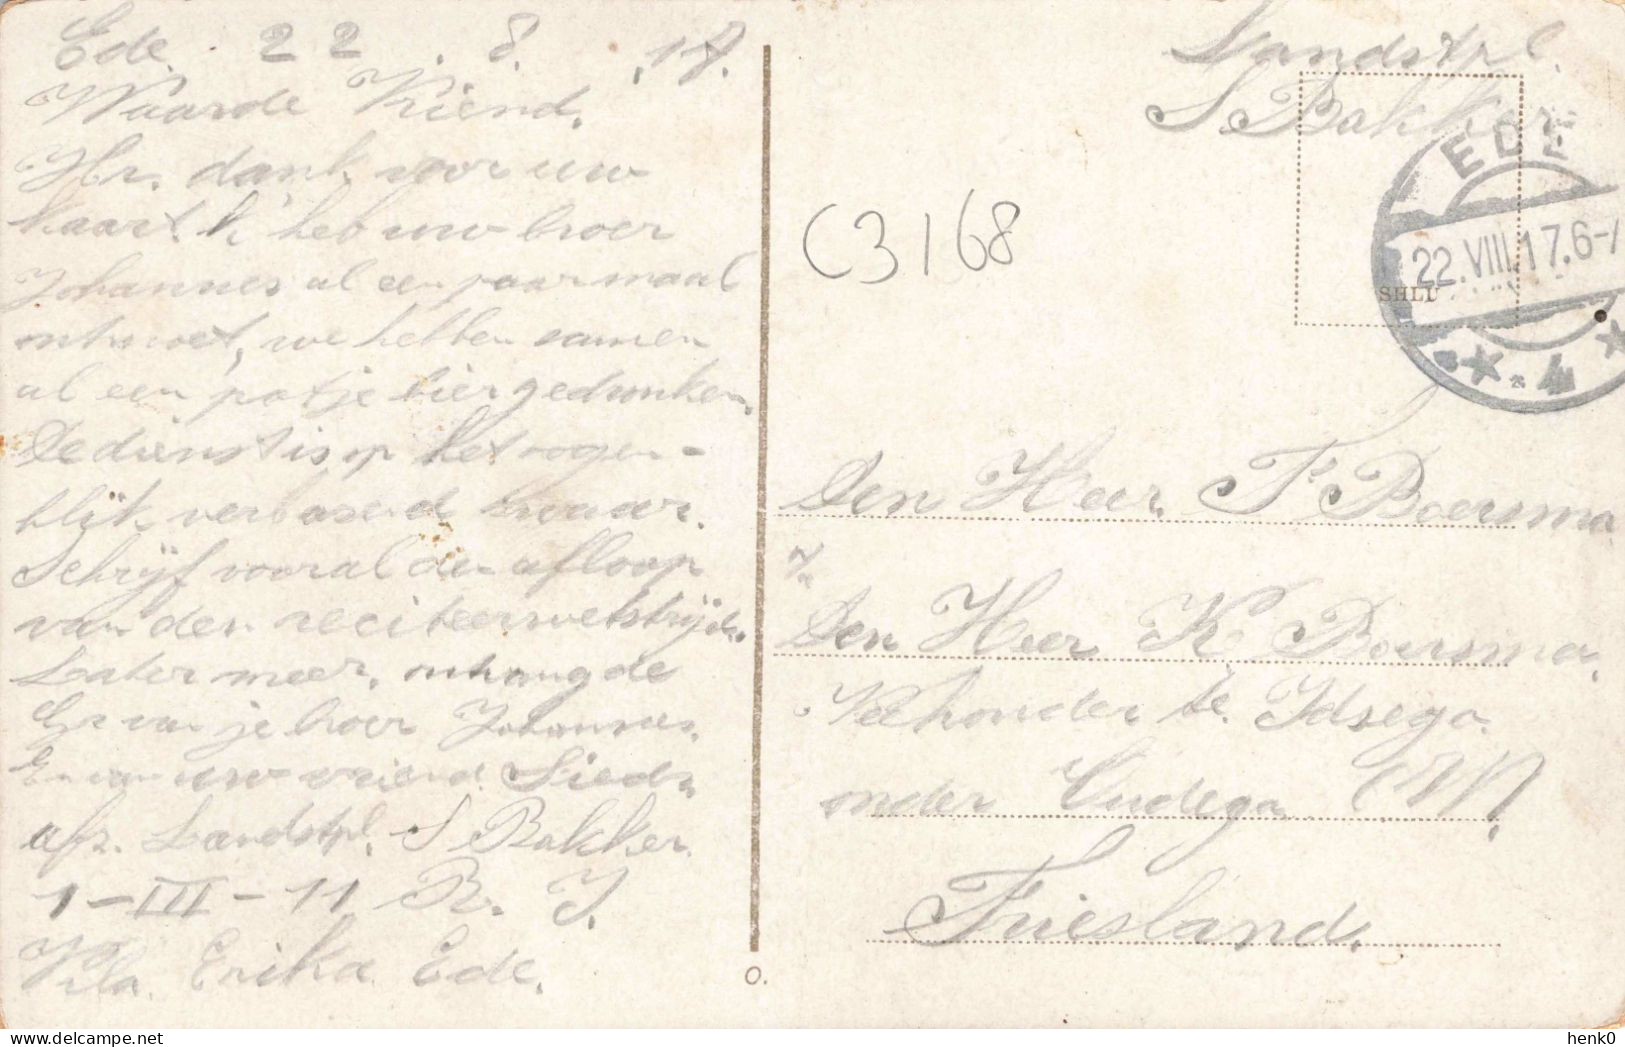 Ede. 22.8.17.
Waarde Vriend.
Hr. dank voor uw
kaart. k' heb uw broer
Johannes al een paar maal
ontmoet, we hebben samen
al een potje bier gedronken.
De dienst is op het oogen-
blik verbasend zwaar.
Schrijf vooral den afloop
van den reciteerwetstrijd.
Later meer. ontvang de
Gr van je broer Johannes.
En van uw vriend. Sieds.
afz. Landstpl. S Bakker.
1-III-11 R. I.
Vila. Erika Ede.
Landstpl.
S. Bakker
EDE
22.VIII.17.6-7
4
SHLU
C3168
Den Heer. T. Boersma
Den Heer K. Boersma.
Veehouder te. Idsega.
onder Oudega (W)
Friesland.
O.
henk0